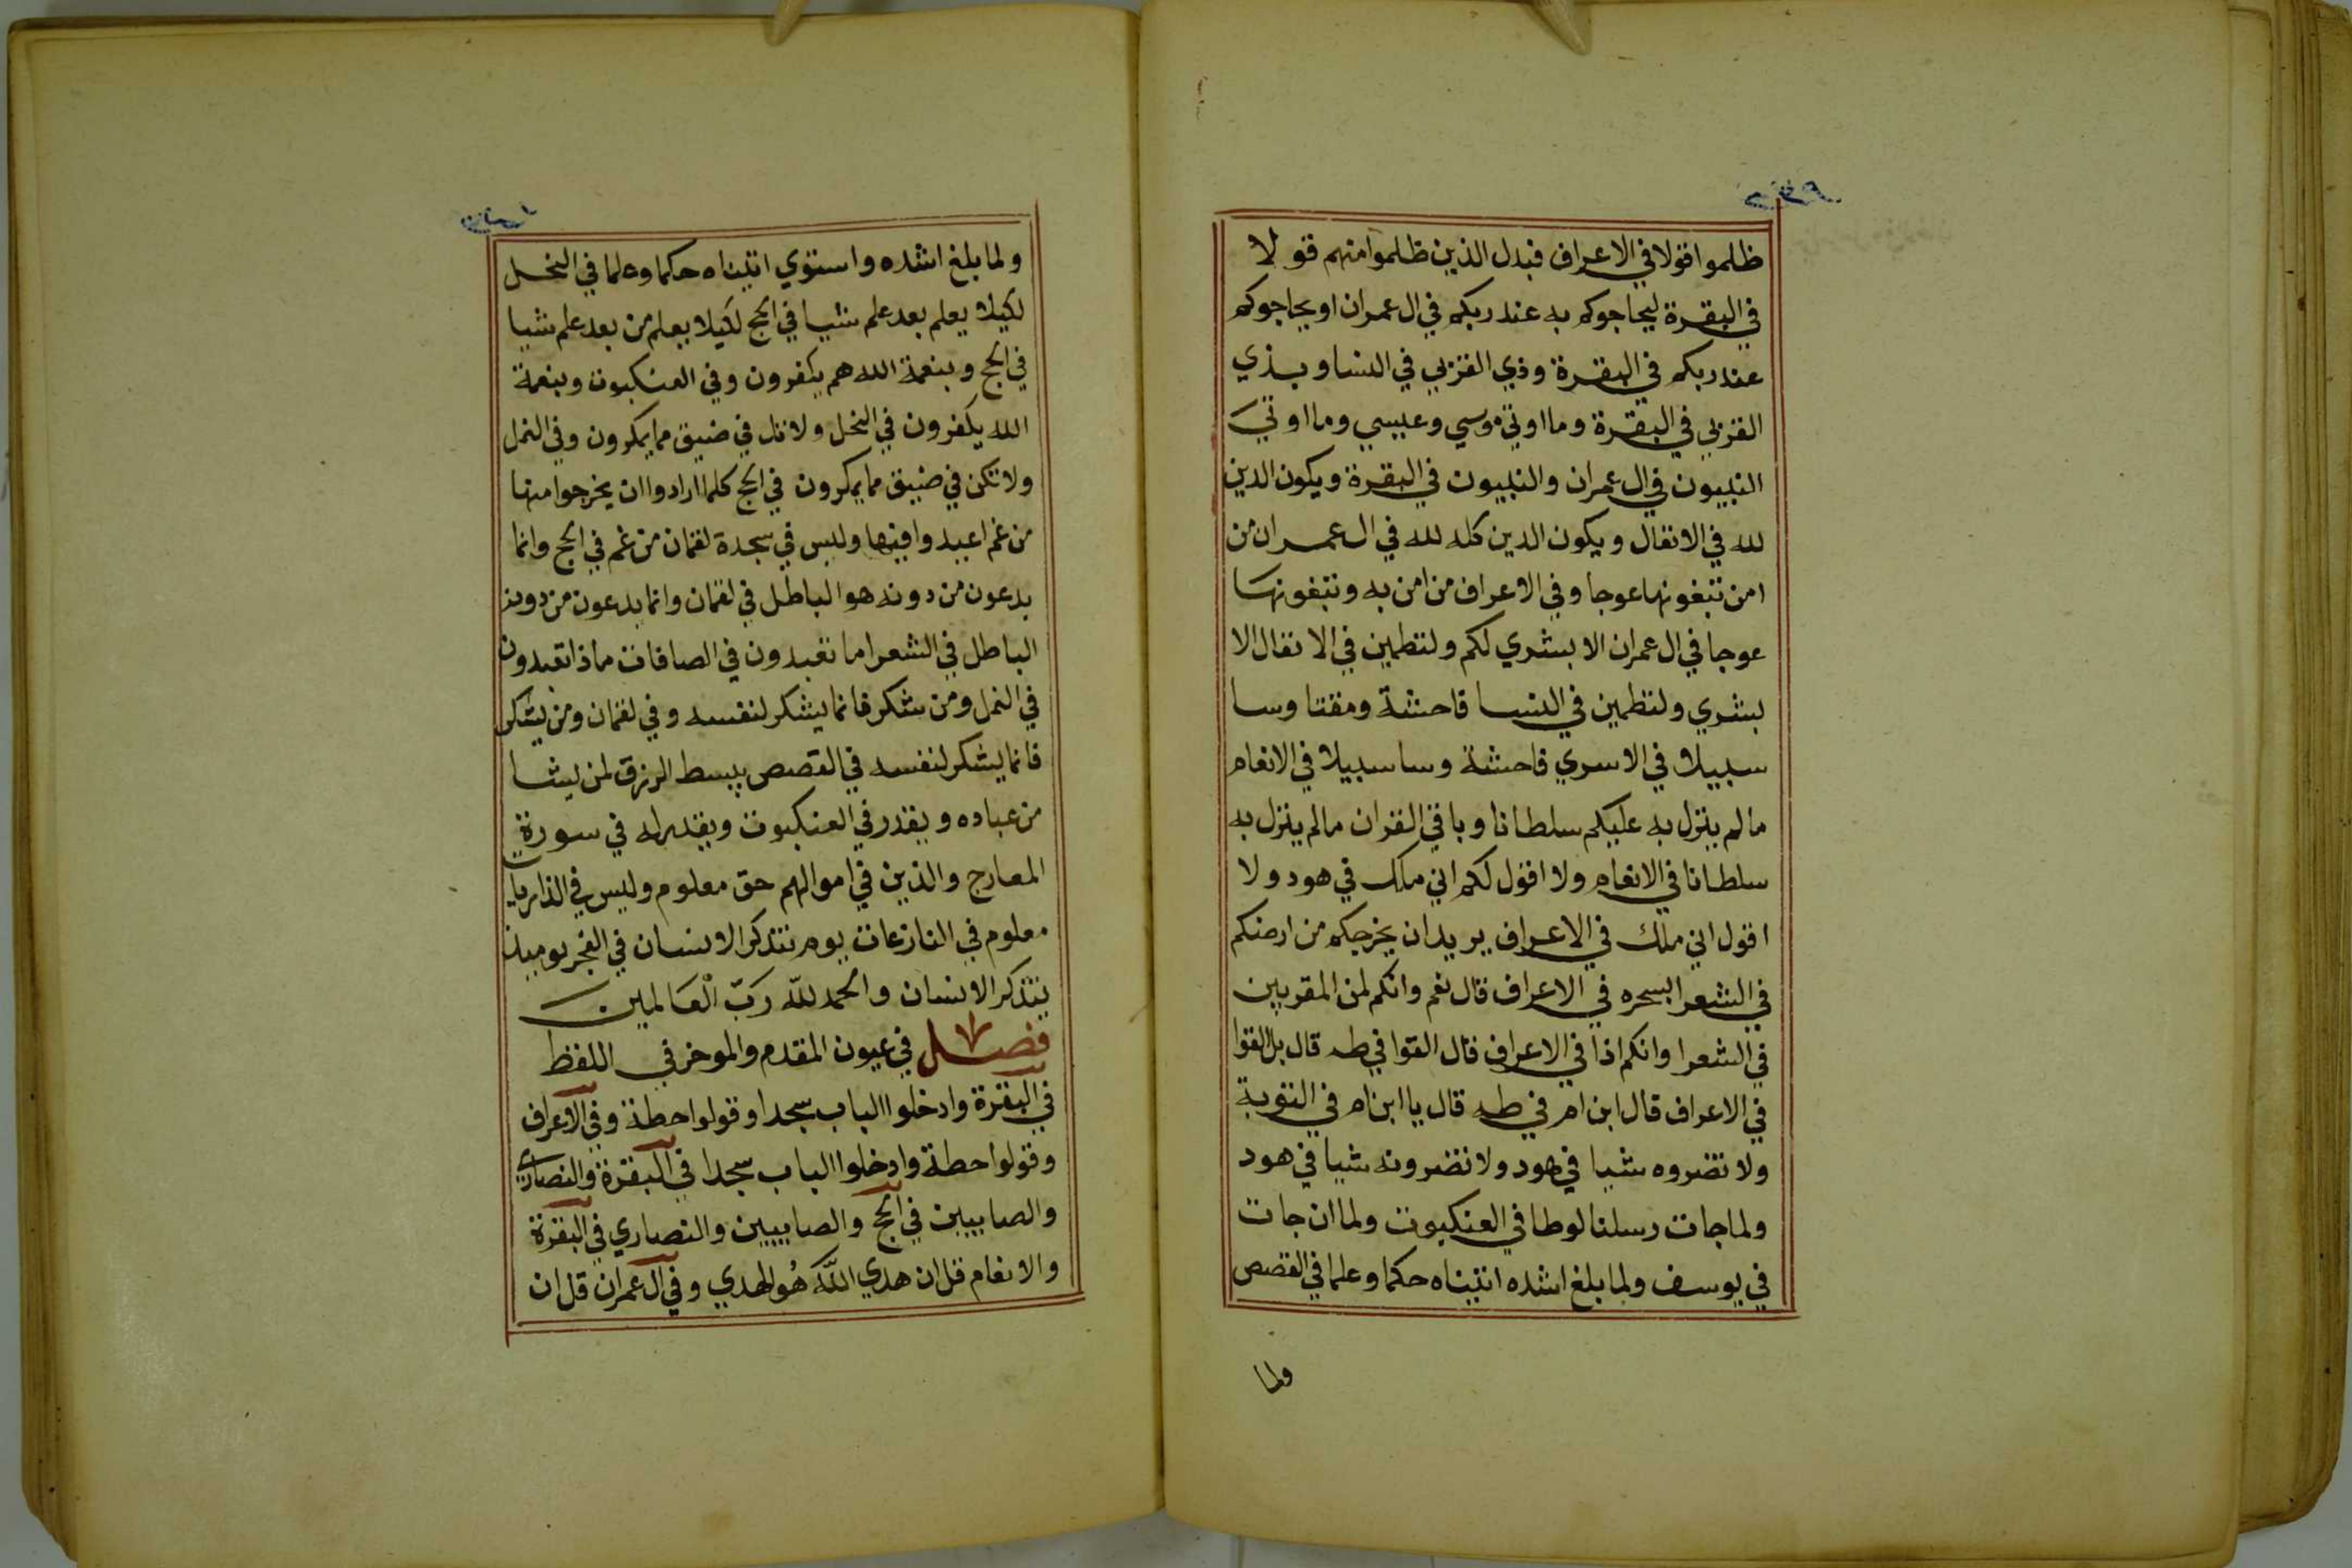 ظلموا قولا في الاعراف فبدل الذين ظلموا منهم قولا
في البقرة ليحاجوكم به عند ربكم في ال عمران او يحاجوكم
عند ربكم في البقرة وذي القربي في النسا وبذي
القربي في البقرة وما اوتي موسي وعيسي وما اوتي
النبيون في ال عمران والنبيون في البقرة ويكون الدين
لله في الانفال ويكون الدين كله لله في ال عمران من
امن تبغونها عوجا وفي الاعراف من امن به وتبغونها
عوجا في ال عمران الا بشري لكم ولتطمين في الانفال الا
بشري ولتطمين في النسا فاحشة ومقتا وسا
سبيلا في الاسري فاحشة وسا سبيلا في الانعام
مالم ينزل به عليكم سلطانا وباقي القران مالم ينزل به
سلطانا في الانعام ولا اقول لكم اني ملك في هود ولا
اقول اني ملك في الاعراف يريد ان يخرجكم من ارضكم
في الشعرا بسحره في الاعراف قال نعم وانكم لمن المقربين
في الشعرا وانكم اذا في الاعراف قال القوا في طه قال بل القوا
في الاعراف قال ابن ام في طه قال يا ابن ام في التوبة
ولا تضروه شيا في هود ولا تضرونه شيا في هود
ولما جات رسلنا لوطا في العنكبوت ولما ان جات
في يوسف ولما بلغ اشده اتيناه حكما وعلما في القصص
ولما
ولما بلغ اشده واستوي اتيناه حكما وعلما في النحل
لكيلا يعلم بعد علم شيا في الحج لكيلا يعلم من بعد علم شيا
في الحج وبنعمة الله هم يكفرون وفي العنكبوت وبنعمة
الله يكفرون في النحل ولا تك في ضيق مما يمكرون وفي النمل
ولا تكن في ضيق مما يمكرون في الحج كلما ارادوا ان يخرجوا منها
من غم اعيدوا فيها وليس في سجدة لقمان من غم في الحج وانما
يدعون من دونه هو الباطل في لقمان وانما يدعون من دونه
الباطل في الشعرا ما تعبدون في الصافات ماذا تعبدون
في النمل ومن شكر فانما يشكر لنفسه وفي لقمان ومن يشكر
فانما يشكر لنفسه في القصص يبسط الرزق لمن يشا
من عباده ويقدر في العنكبوت ويقدر له في سورة
المعارج والذين في اموالهم حق معلوم وليس في الذاريات
معلوم في النازعات يوم يتذكر الانسان في الفجر يوميذ
يتذكر الانسان والحمد لله رَبّ الْعَالمين
فصل في عيون المقدم والموخر في اللفظ
في البقرة وادخلوا الباب سجدا وقولوا حطة وفي الاعراف
وقولوا حطة وادخلوا الباب سجدا في البقرة والنصاري
والصابيين في الحج والصابيين والنصاري في البقرة
والانعام قل ان هدي اللَّه هُو الهدي وفي ال عمران قل ان